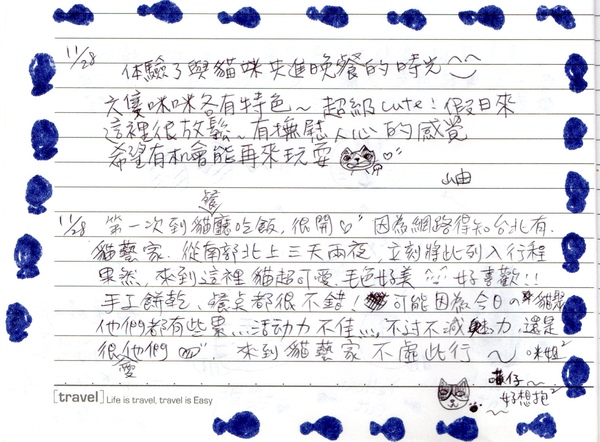 11/28
体驗了與貓咪共進晚餐的時光
六隻咪咪各有特色~超級cute!假日來
這裡很放鬆、有撫慰人心的感覺
希望有机會能再來玩耍
岫
11/28 第一次到貓餐廳吃飯,很開♡ 因為網路得知台北有
貓藝家.從南部北上三天兩夜,立刻將此列入行程
果然,來到這裡貓超可愛,毛色好美 好喜歡!!
手工餅乾、餐点都很不錯! 可能因為今日の貓
他們都有些累...活动力不佳...不过不減魅力,還是
很愛他們 來到貓藝家不虛此行~
好想抱²
[travel] Life is travel, travel is Easy